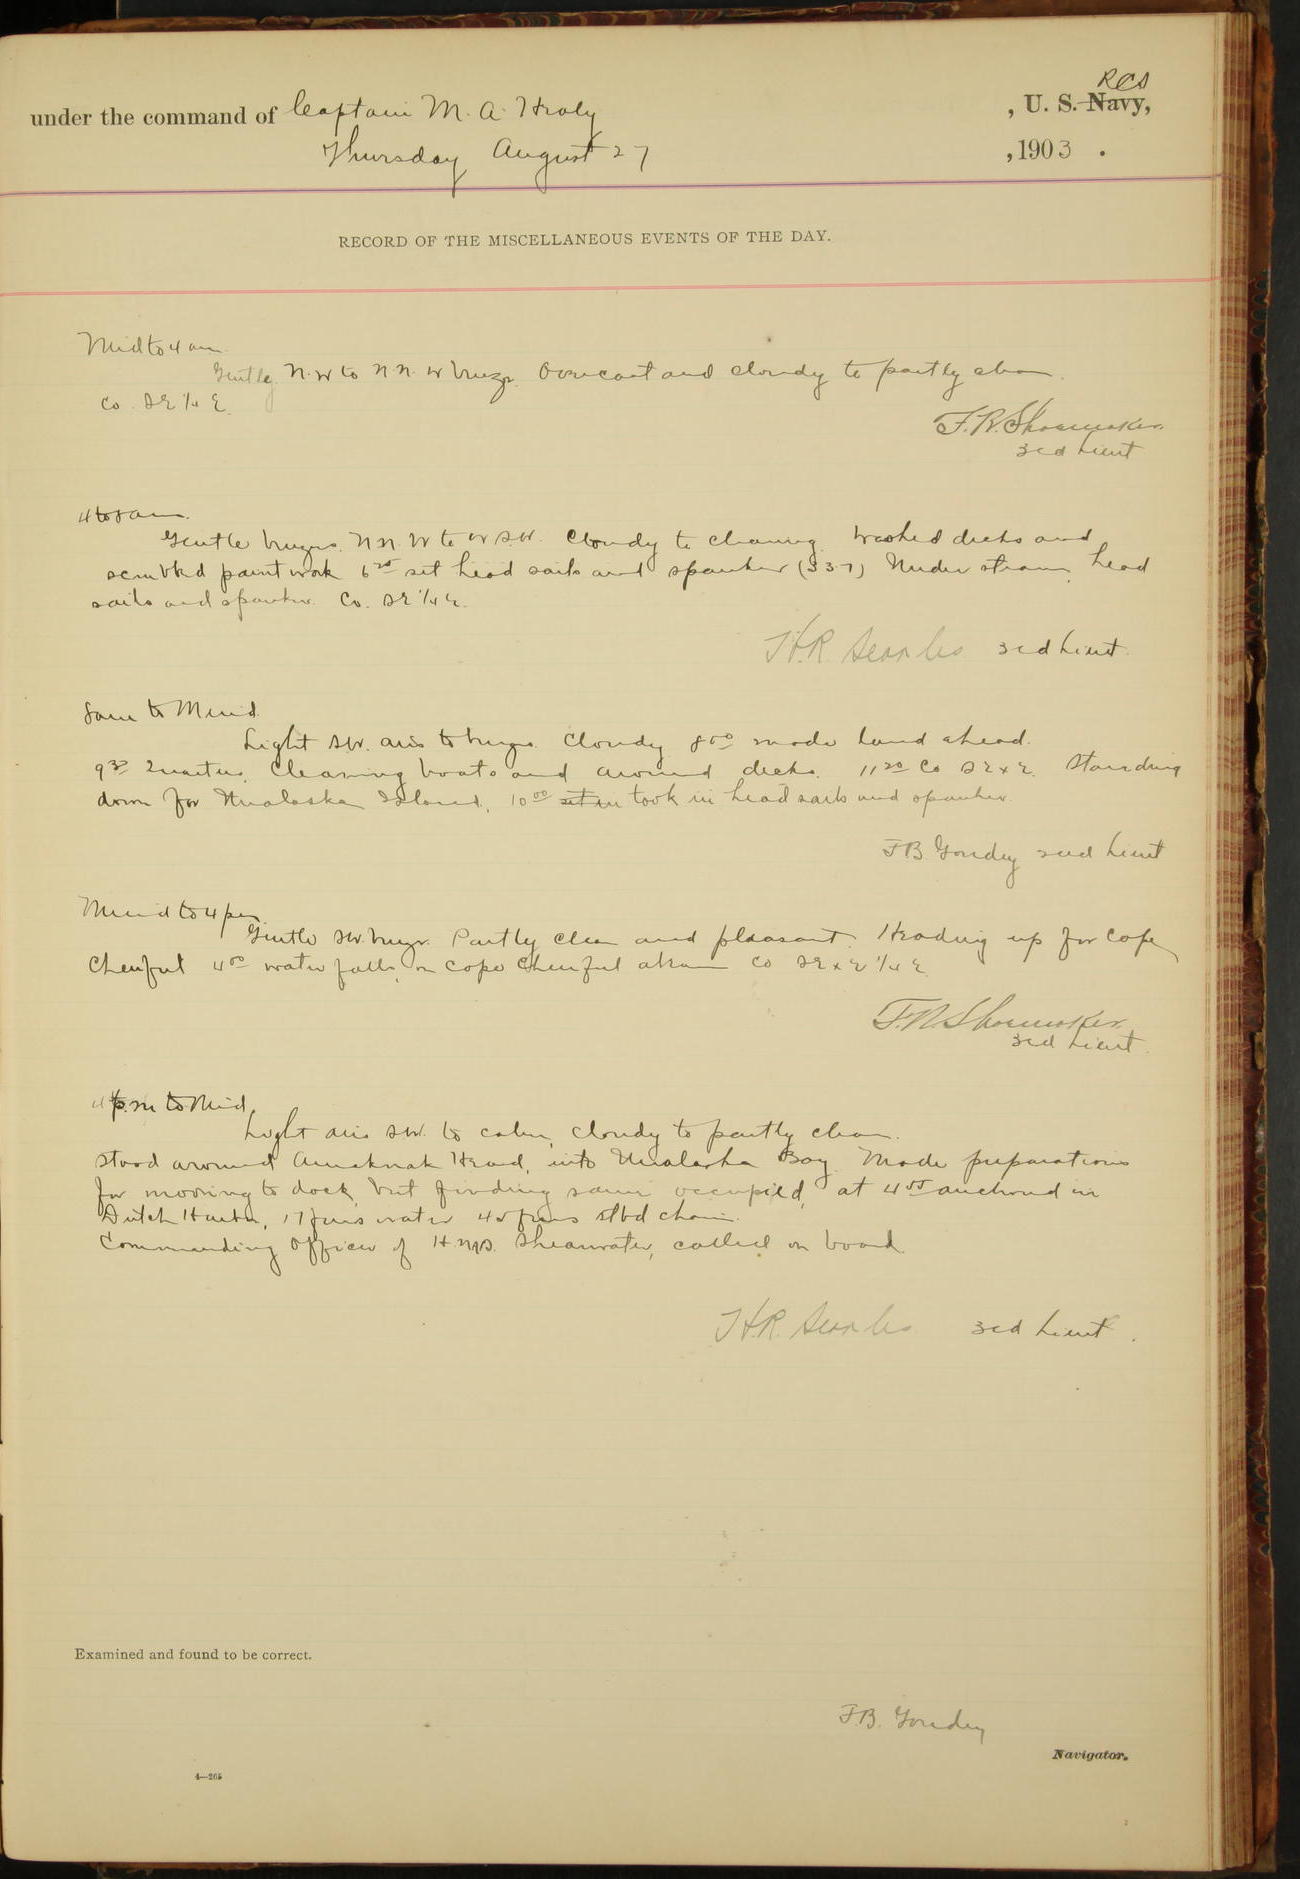 RCS
under the command of Captain M. A. Healy , U. S. Navy,
Thursday August 27 , 1903 .
RECORD OF THE MISCELLANEOUS EVENTS OF THE DAY.
Mid to 4 am
Gentle N.W to N.N.W breeze. Overcast and cloudy to partly clear.
Co. SE 1/4 E.
F. R. Shoemaker
3rd Lieut
4 to 8 am.
Gentle breezes N.N.W to W S.W. Cloudy to clearing. Washed decks and
scrubbed paint work 6 set head sails and spanker (337) Under steam, head
sails and spanker. Co. SE 1/4 E.
H.R. Searles 3rd Lieut.
8 am to Merid.
Light SW. airs to breeze. Cloudy 8 00 made land ahead.
9 30 Quarters. Cleaning boats and around decks. 11 20 Co SE x E. Standing
down for Unalaska Island. 10 00 set in took in head sails and spanker.
F.B. Goudey 2nd Lieut
Merid to 4 pm
Gentle SW. breeze. Partly clear and pleasant. Heading up for Cape
Cheerful 4 00 water falls, on Cape Cheerful abeam Co SE x E 1/4 E
F. R. Shoemaker.
3rd Lieut.
4 p.m to Mid.
Light airs SW. to calm, cloudy to partly clear.
Stood around Amaknak Head, into Unalaska Bay. Made preparations
for mooring to dock, but finding same occupied, at 4 55 anchored in
Dutch Harbor, 17 fms water 45 fms stbd chain.
Commanding Officer of H.M.S. Shearwater, called on board.
H.R. Searles 3rd Lieut.
Examined and found to be correct.
F.B. Goudey
Navigator.
4—265